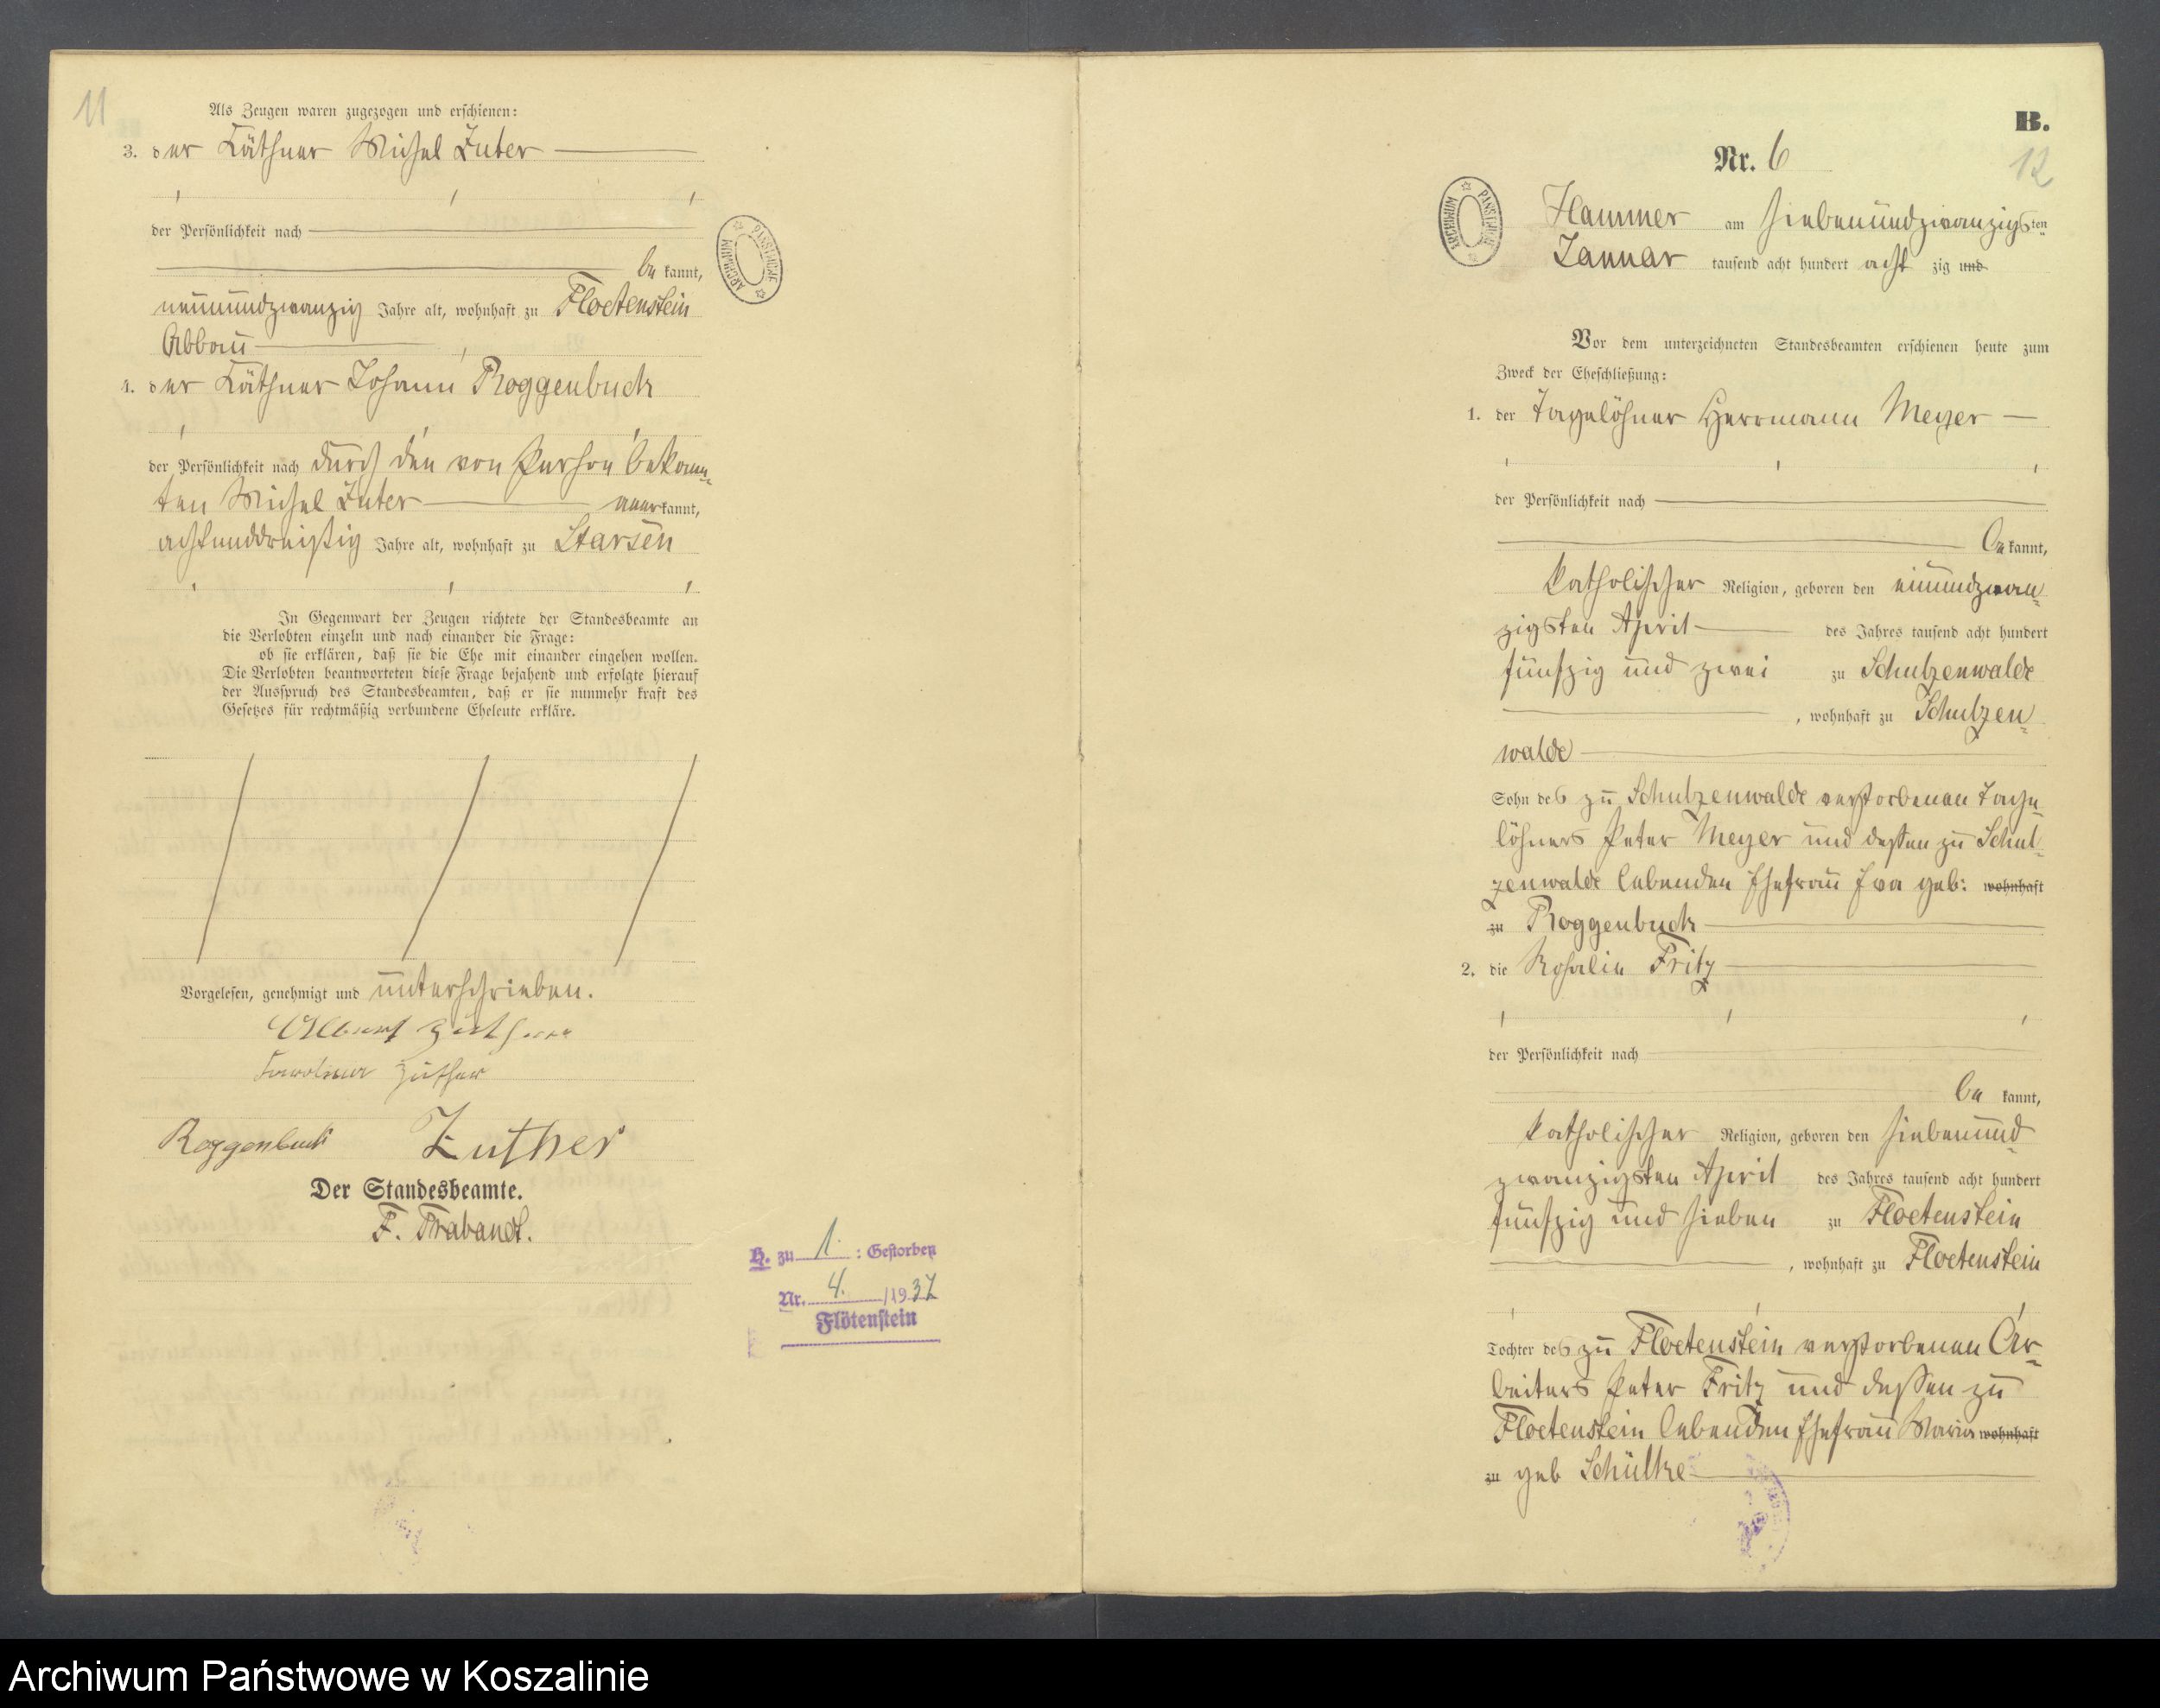 11
Als Zeugen waren zugezogen und erschienen:
3. der Käthner Michel Zuter
der Persönlichkeit nach
be kannt,
neunundzwanzig Jahre alt, wohnhaft zu Floetenstein
Abbau
4. der Käthner Johann Roggenbuck
der Persönlichkeit nach durch den von Person bekann-
ten Michel Zuter anerkannt,
achtunddreißig Jahre alt, wohnhaft zu Starsen
In Gegenwart der Zeugen richtete der Standesbeamte an
die Verlobten einzeln und nach einander die Frage:
ob sie erklären, daß sie die Ehe mit einander eingehen wollen.
Die Verlobten beantworteten diese Frage bejahend und erfolgte hierauf
der Ausspruch des Standesbeamten, daß er sie nunmehr kraft des
Gesetzes für rechtmäßig verbundene Eheleute erkläre.
Vorgelesen, genehmigt und unterschrieben.
Albert
Karoline
Roggenbuck Zuther
Der Standesbeamte.
F. Trabandt.
H. zu 1 : Gestorben
Nr. 4. /1937
Flötenstein
ARCHIWUM PAŃSTWOWE
B.
12
Nr. 6
Hammer am siebenundzwanzigsten
Januar tausend acht hundert acht zig und
ARCHIWUM PAŃSTWOWE
Vor dem unterzeichneten Standesbeamten erschienen heute zum
Zweck der Eheschließung:
1. der Tagelöhner Herrmann Meyer
der Persönlichkeit nach
be kannt,
katholischer Religion, geboren den einundzwan-
zigsten April des Jahres tausend acht hundert
fünfzig und zwei zu Schulzenwalde
, wohnhaft zu Schulzen-
walde
Sohn des zu Schulzenwalde verstorbenen Tage-
löhners Peter Meyer und dessen zu Schul-
zenwalde lebenden Ehefrau Eva geb: wohnhaft
zu Roggenbuck
2. die Rosalie Fritz
der Persönlichkeit nach
be kannt,
katholischer Religion, geboren den siebenund-
zwanzigsten April des Jahres tausend acht hundert
fünfzig und sieben zu Floetenstein
, wohnhaft zu Floetenstein
Tochter des zu Floetenstein verstorbenen Ar-
beiters Peter Fritz und dessen zu
Floetenstein lebenden Ehefrau Maria wohnhaft
zu geb Schülke
Archiwum Państwowe w Koszalinie